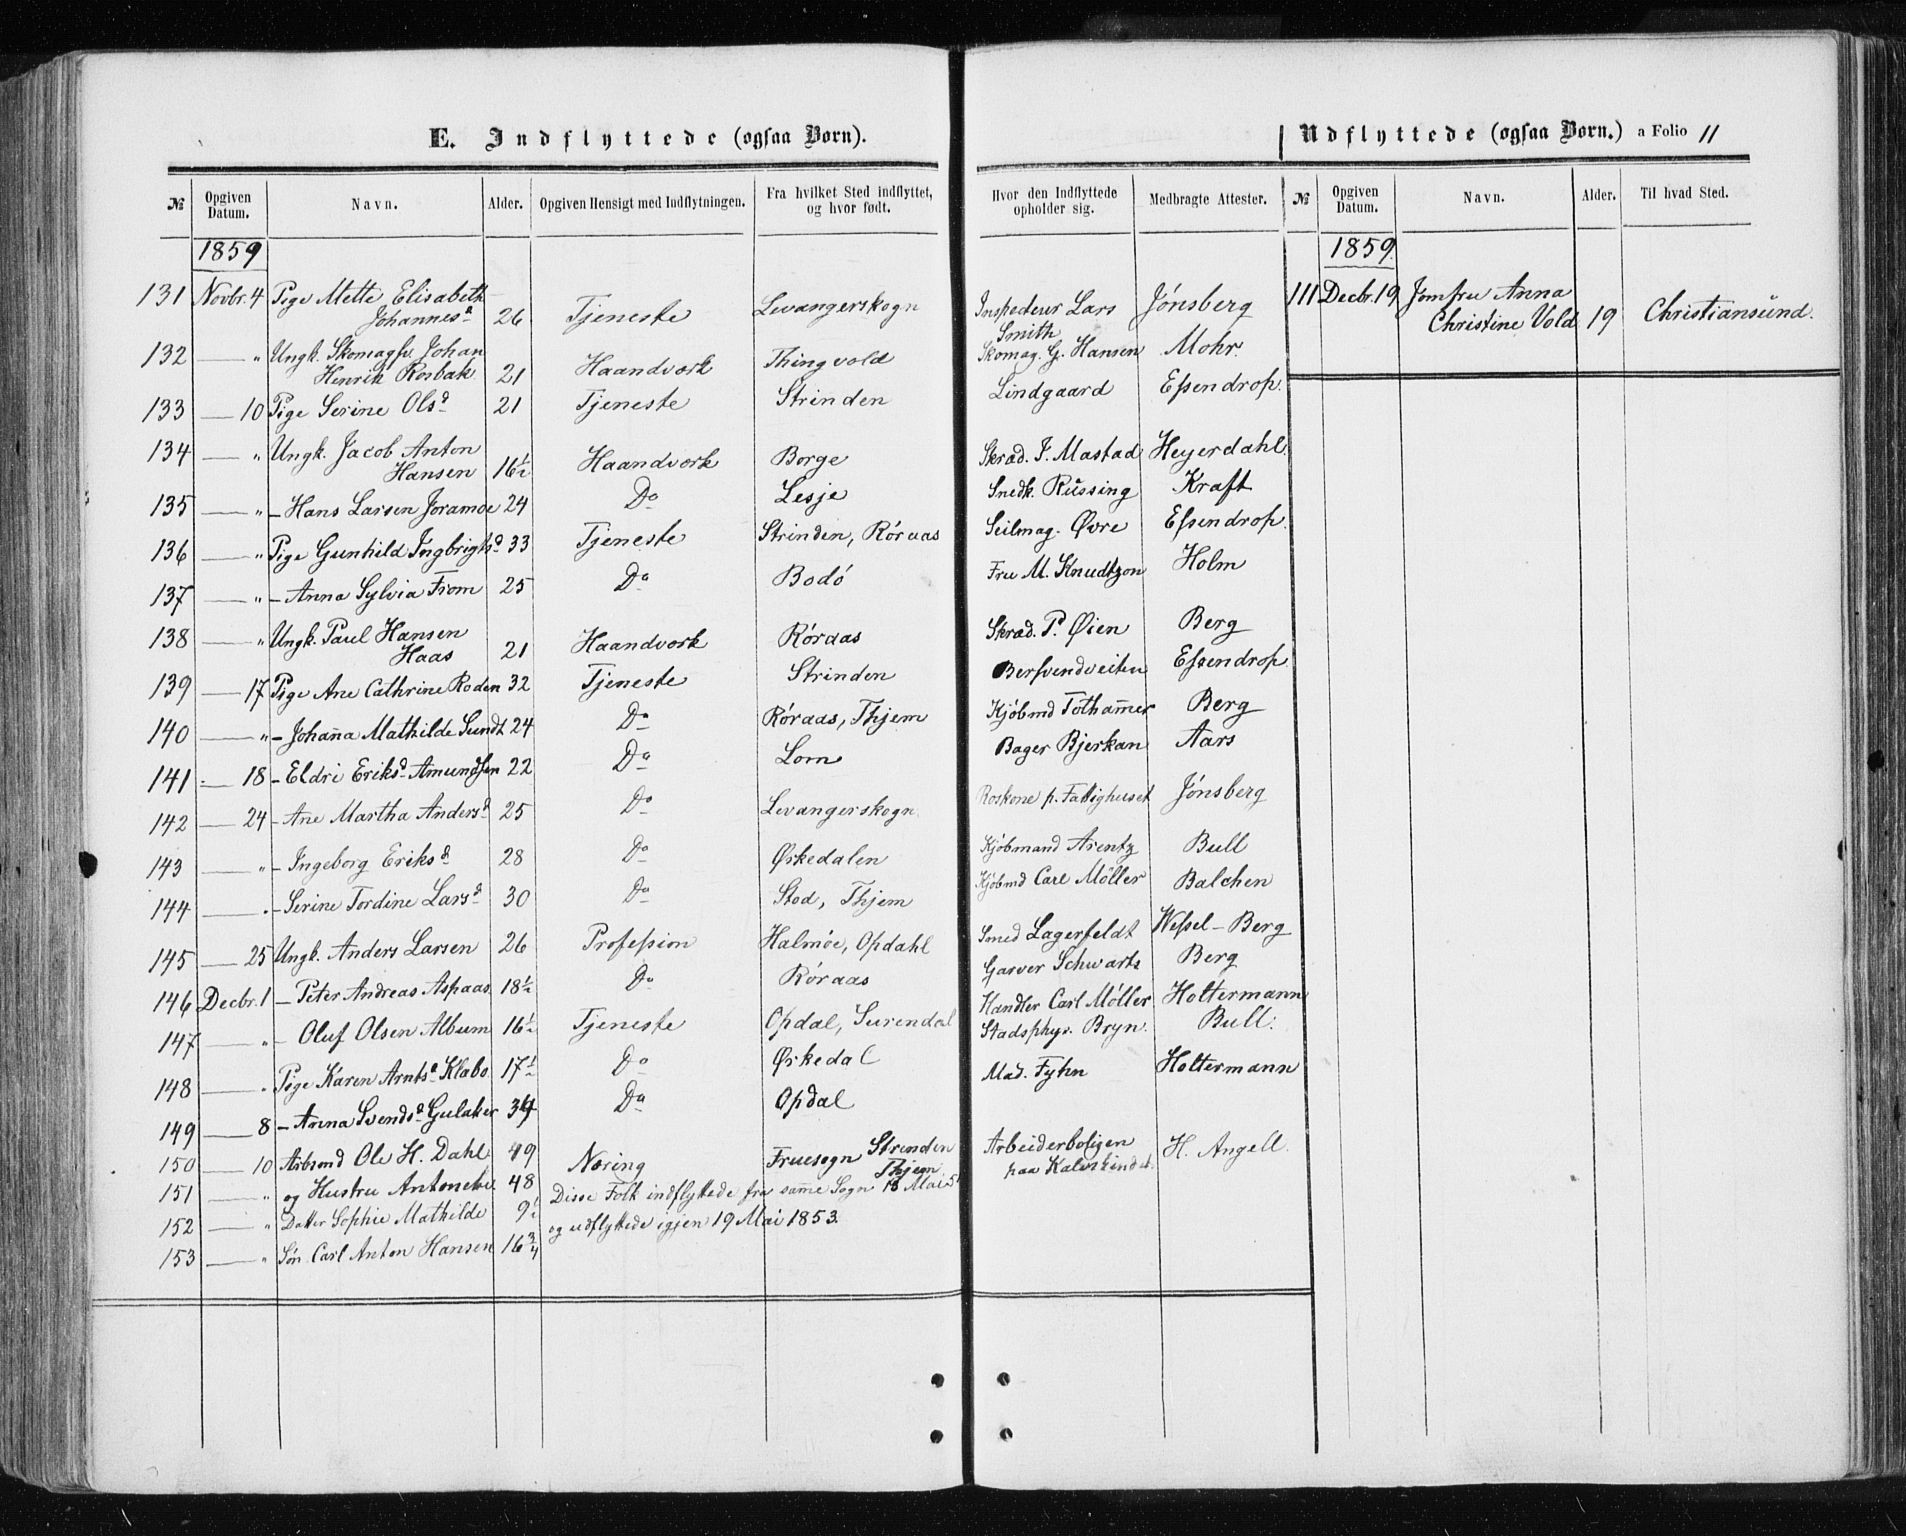 E. Indflyttede (ogsaa Børn).
Udflyttede (ogsaa Børn.) a Folio 11
№ Opgiven Datum. Navn. Alder. Opgiven Hensigt med Indflytningen. Fra hvilket Sted indflyttet, og hvor født. Hvor den Indflyttede opholder sig. Medbragte Attester. № Opgiven Datum. Navn. Alder. Til hvad Sted.
1859 1859.
131 Novbr. 4 Pige Mette Elisabeth
Johannesd 26 Tjeneste Levangerskogn Inspecteur Lars Smith Jónsberg
111 Decbr. 19 Jomfru Anna
Christine Vold 19 Christiansund.
132 — " Ungk. Skomagsv. Johan
Henrik Rosbak 21 Haandværk Thingvold Skomag. G. Hansen Mohr.
133 — 10 Pige Serine Olsd 21 Tjeneste Strinden Lindgaard Essendrop.
134 — " Ungk. Jacob Anton
Hansen 16½ Haandværk Borge Skræd. J. Mastad Heyerdahl
135 — " — Hans Larsen Joramoe 24 Do Lesje Snedk. Russing Kraft
136 — " Pige Gunhild Ingbrigtsd 33 Tjeneste Strinden, Róraas Seilmag. Øvre Essendrop.
137 — " — Anna Sylvia From 25 Do Bodó Fru M. Knudtzon Holm
138 — " Ungk. Paul Hansen
Haas 21 Haandværk Róraas Skræd. P. Øien Berg
139 — 17 Pige Ane Cathrine Roden 32 Tjeneste Strinden Bersvendveiten Essendrop.
140 — " — Johanna Mathilde Sundt 24 Do Róraas, Thjem Kjóbmd Tothammer Berg
141 — 18 — Eldri Eriksd Amundsen 22 Do Lom Bager Bjerkan Aars
142 — 24 — Ane Martha Andersd 25 Do Levangerskogn. Roskone p. Fattighuset Jónsberg
143 — " — Ingeborg Eriksd 28 Do Ørkedalen Kjóbmand Arentz Bull
144 — " — Serine Tordine Larsd 30 Do Stod, Thjem Kjóbmd Carl Móller Balchen
145 — 25 Ungk. Anders Larsen 26 Profession Halmóe, Opdahl Smed Lagerfeldt Wessel-Berg
146 Decbr. 1 — Peter Andreas Aspaas 18½ Do Róraas Garver Schwarts Berg
147 — " — Oluf Olsen Album 16½ Tjeneste Opdal, Surendal Handler Carl Móller Holtermann
148 — " Pige Karen Arntsd Klabo 17½ Do Ørkedal Stadsphys. Bryn. Bull.
149 — 8 — Anna Svendsd Gulaker 34 Do Opdal Mad. Fyhn Holtermann
150 — 10 Arbmd Ole H. Dahl 49 Næring Fruesogn Strinden Thjem Arbeiderboligen paa Kalvskindet. H. Angell.
151 — " og Hustru Antonette 48 Disse Folk indflyttede fra samme Sogn 18 Mai
152 — " Datter Sophie Mathilde 9½ og udflyttede igjen 19 Mai 1853.
153 — " Søn Carl Anton Hansen 16¾